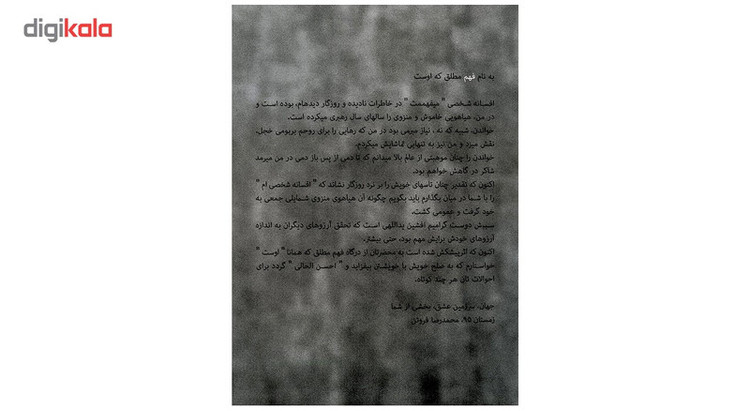 digikala
به نام فهم مطلق که اوست
افسانه شخصی " میفهممت " در خاطرات نادیده و روزگار دیده‌ام، بوده است و
در من، هیاهویی خاموش و منزوی را سالهای سال رهبری میکرده است.
خواندن، شبیه که نه ، نیاز مبرمی بود در من که رهایی را برای روحم بربومی خجل،
نقش میزد و من نیز به تنهایی تماشایش میکردم.
خواندن را چنان موهبتی از عالم بالا میدانم که تا دمی از پس باز دمی در من میرمد
شاکر در گاهش خواهم بود.
اکنون که تقدیر چنان تاسهای خویش را بر نرد روزگار نشاند که " افسانه شخصی ام "
را با شما در میان بگذارم باید بگویم چگونه آن هیاهوی منزوی شمایلی جمعی به
خود گرفت و عمومی گشت.
سببش دوست گرامیم افشین یداللهی است که تحقق آرزوهای دیگران به اندازه
آرزوهای خودش برایش مهم بود، حتی بیشتر.
اکنون که اثرپیشکش شده است به محضرتان از درگاه فهم مطلق که همانا " اوست "
خواستارم که به صلح خویش با خویشتن بیفزاید و " احسن الحالی " گردد برای
احوالات تان هر چند کوتاه.
جهان، سرزمین عشق، بخشی از شما
زمستان ۹۵، محمدرضا فروتن